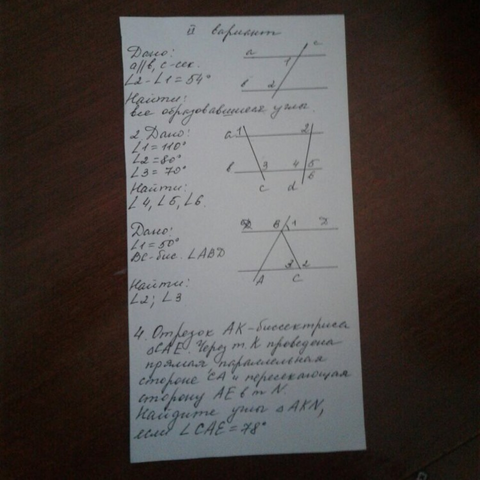 II вариант
Дано:
a||b, c-сек.
∠2-∠1=54°
Найти:
все образовавшиеся углы.
a
c
1
b
2
2 Дано:
∠1=110°
∠2=80°
∠3=70°
Найти:
∠4, ∠5, ∠6.
a 1 2
b 3 4 5
6
c d
Дано:
∠1=50°
BC-бис. ∠ABD
Найти:
∠2; ∠3
B 1 D
3 2
A C
4. Отрезок AK-биссектриса
△CAE. Через т. K проведена
прямая параллельная
стороне CA и пересекающая
сторону AE в т N.
Найдите углы △AKN,
если ∠CAE=78°